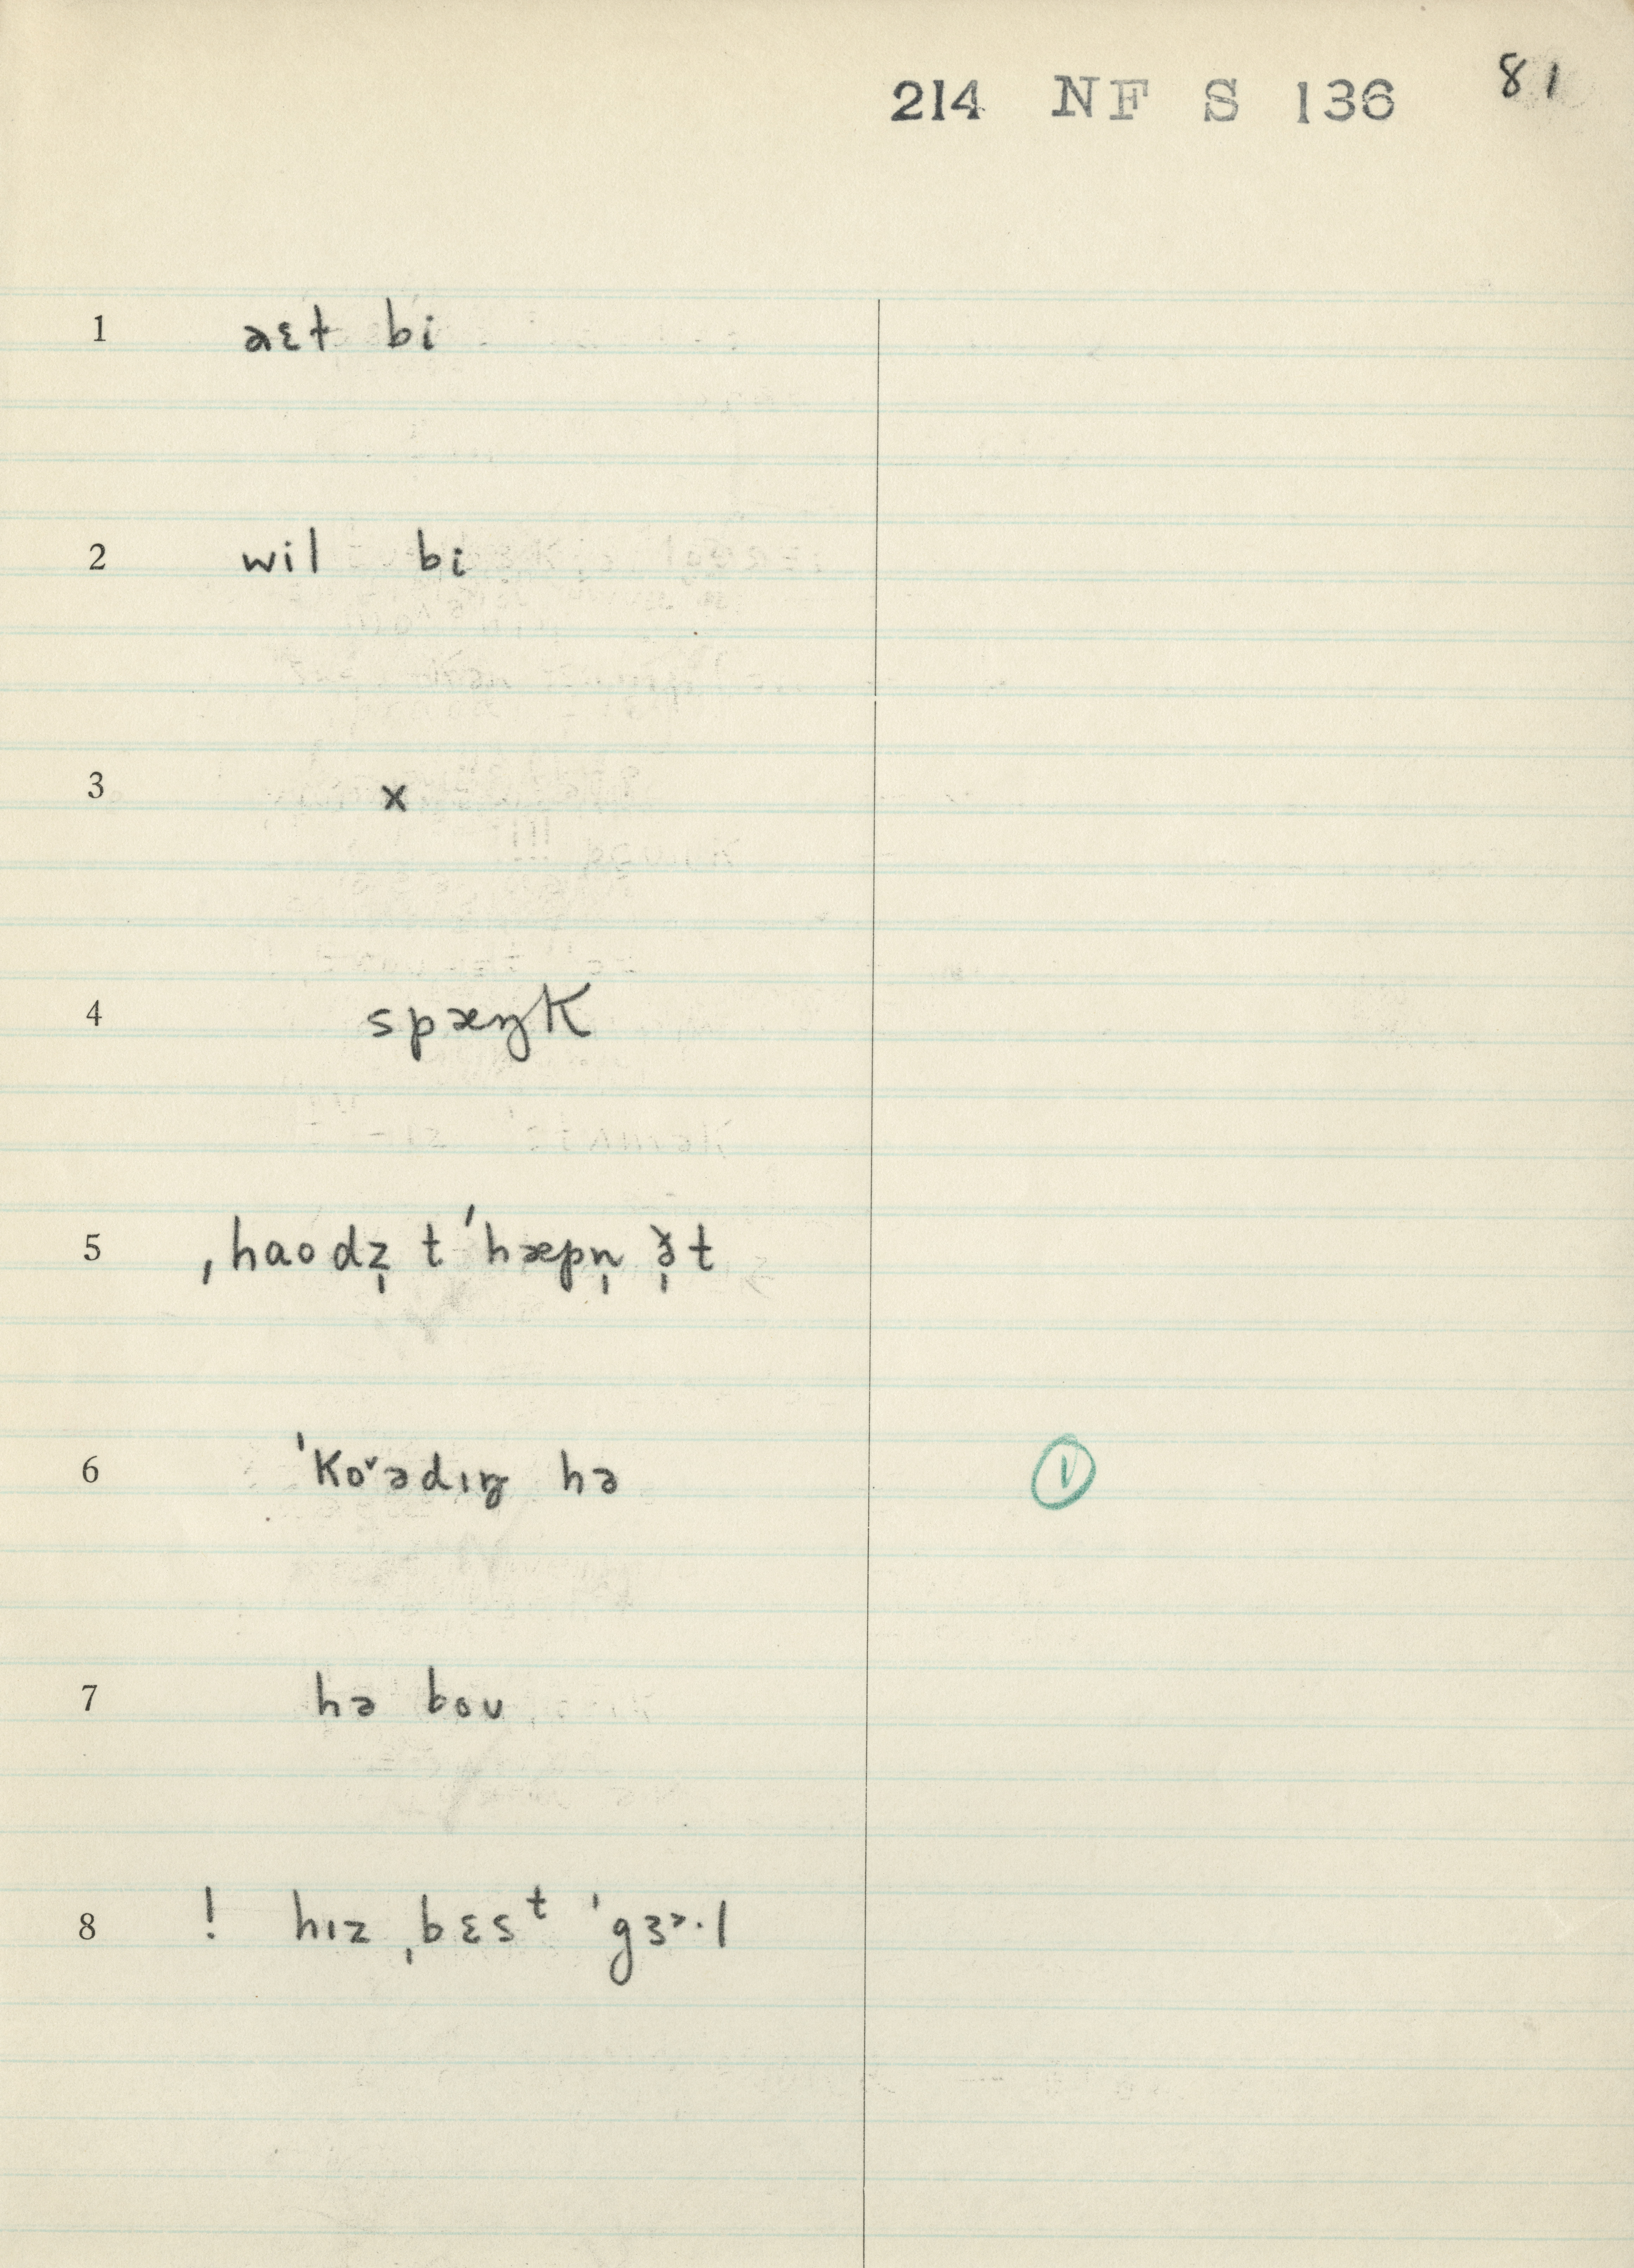 214 NF S 136 81
1 əɛt bi
2 wil bi
3 x
4 spæŋk
5 ˌhaodz̩ t ˈhæpn̩ ə̩̆t
6 ˈkoˇədɪŋ hə
①
7 hə boʊ
8 ! hɪz ˌbɛsᵗ ˈgɜ˃·l